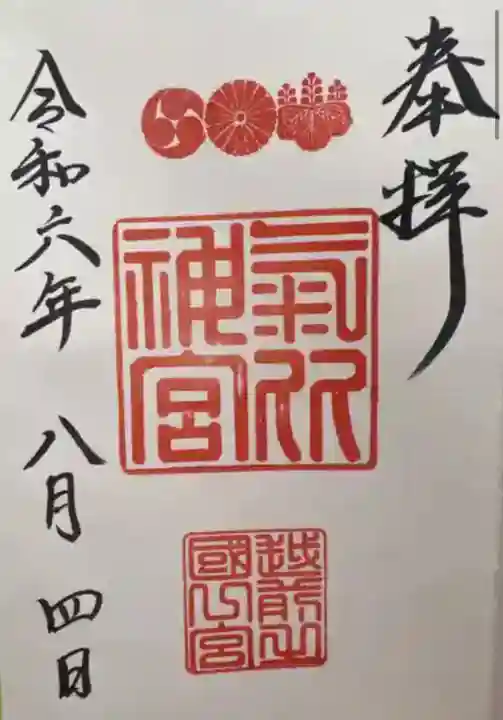 奉拝
氣比
神宮
越前之
國宮
令和六年 八月 四日